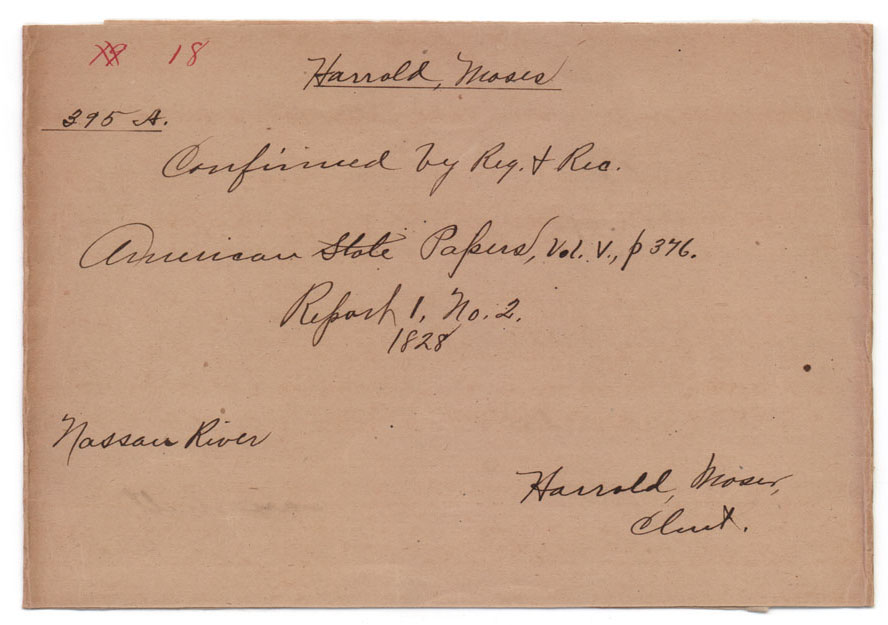 18
Harrold, Moses
395 A.
Confirmed by Reg. & Rec.
American State Papers, Vol. V., p 376.
Report 1, No. 2.
1828
Nassau River
Harrold, Moses,
Clmt.